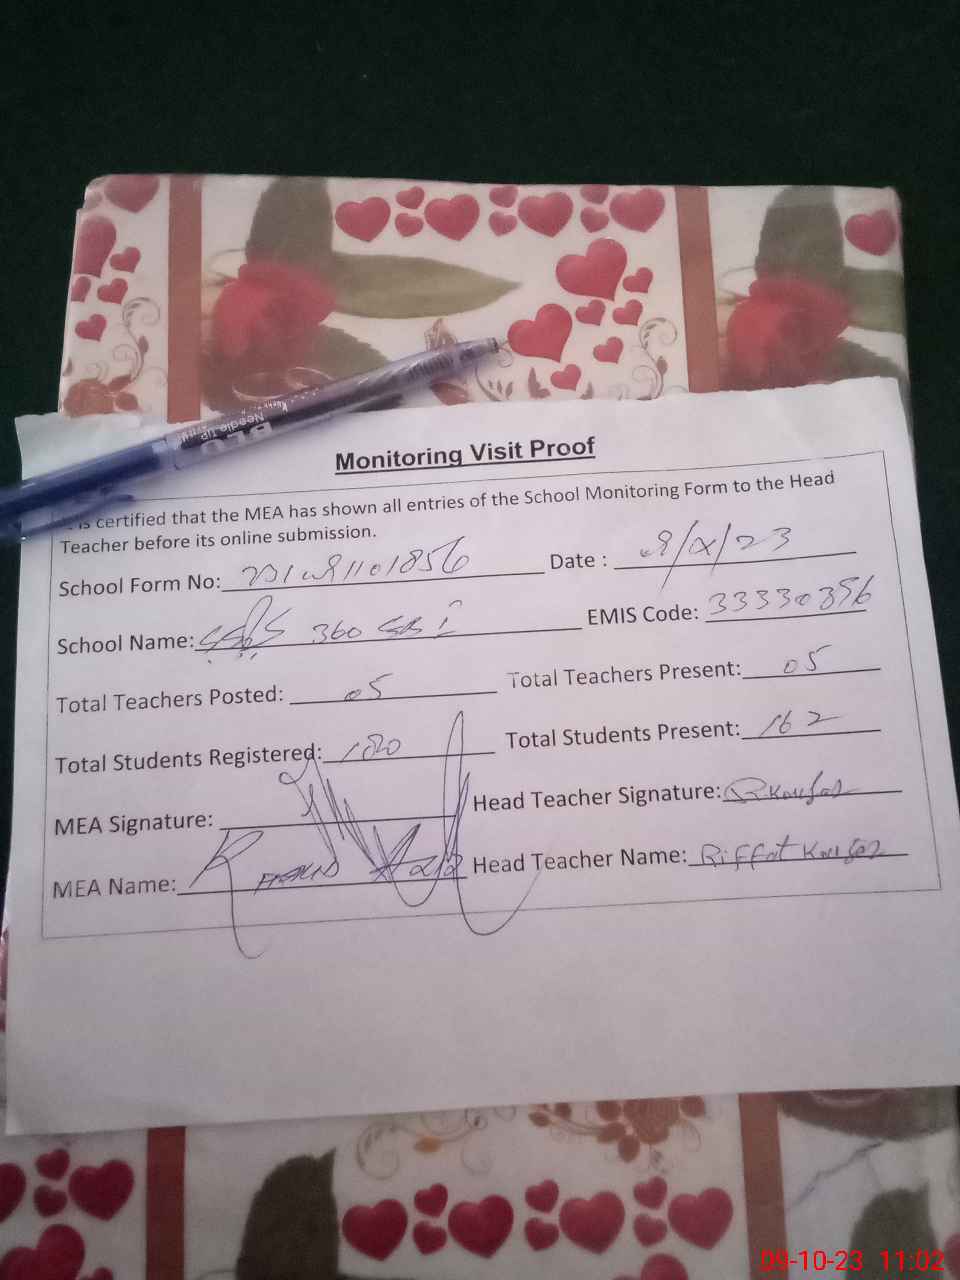 BLU
Needle UP
Monitoring Visit Proof
is certified that the MEA has shown all entries of the School Monitoring Form to the Head
Teacher before its online submission.
School Form No: Date : /23
School Name: 360 EMIS Code: 33330356
Total Teachers Posted: 05 Total Teachers Present: 05
Total Students Registered: 180 Total Students Present: 162
MEA Signature: Head Teacher Signature: R.Kausar
MEA Name: Head Teacher Name: Riffat Kausar
09-10-23 11:02